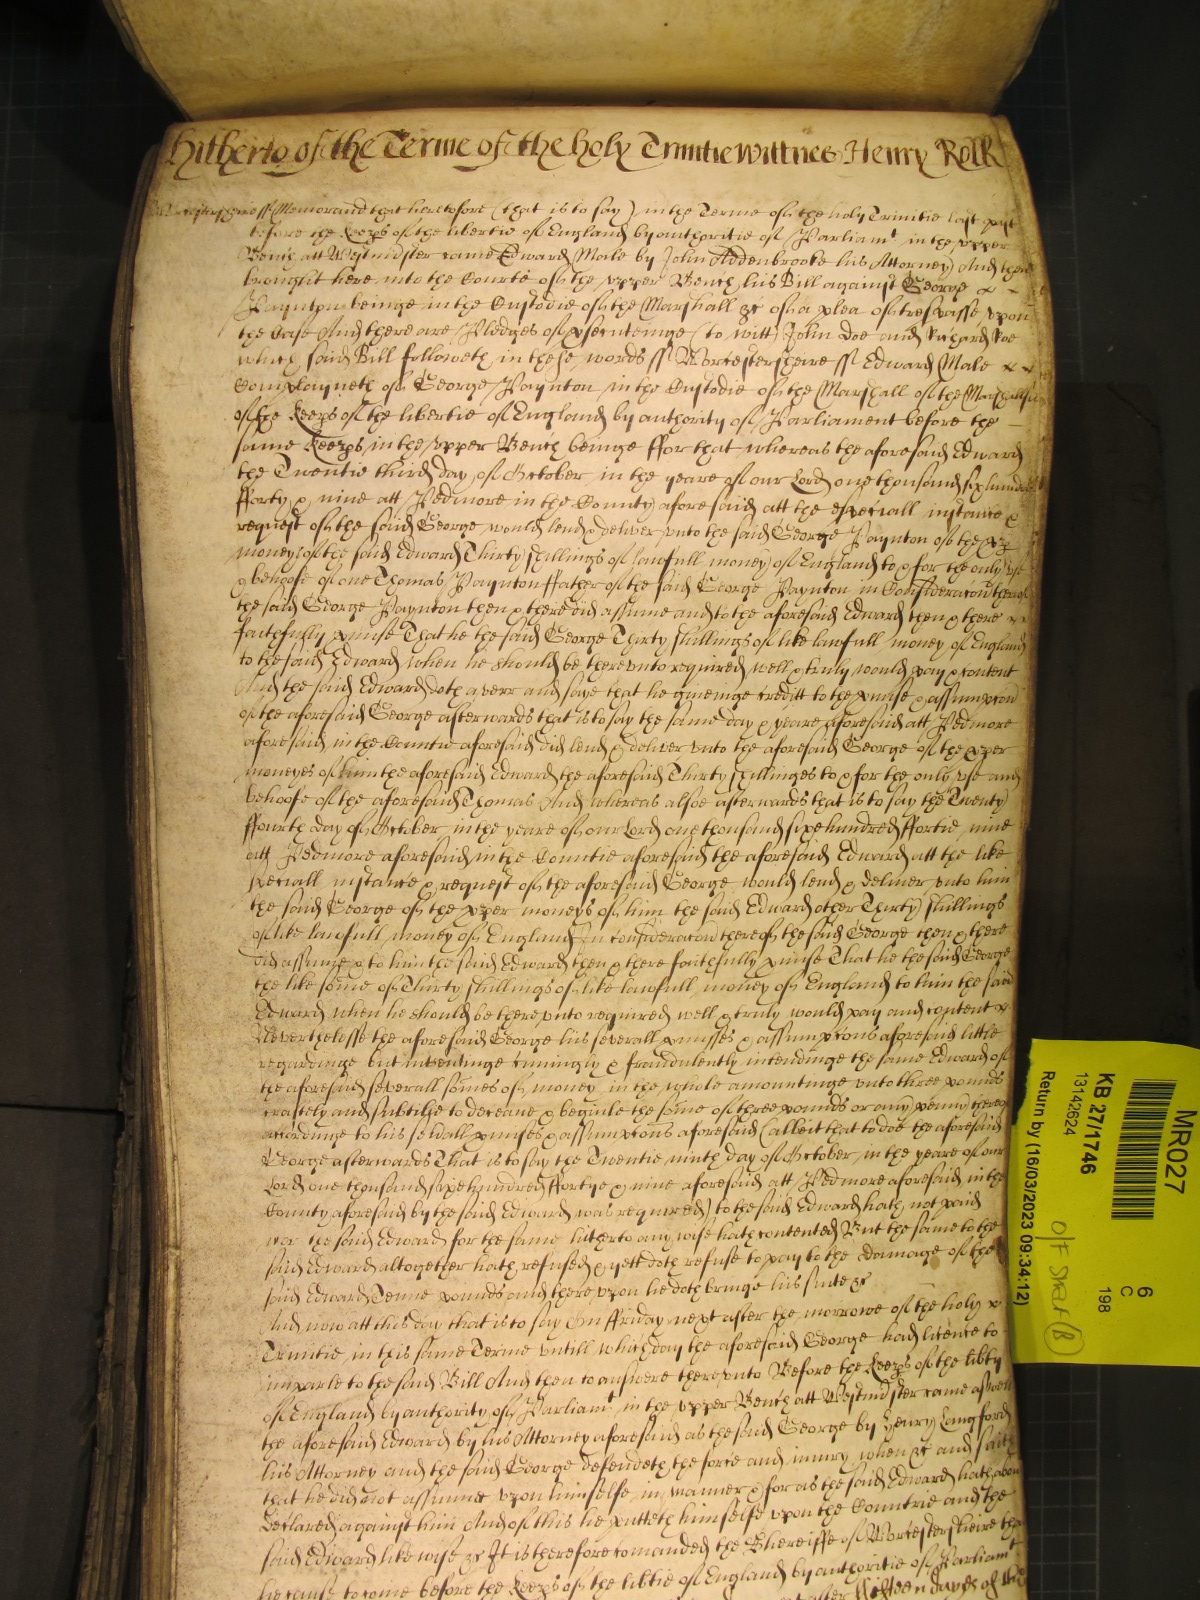 hitherto of the Terme of the holy Trinitie Wittnes Henry Rolle
Worcestershire ss Memorand that heretofore (that is to say) in the Terme of the holy Trinitie last past
before the Keeps of the libertie of England by authoritie of Parliamt in the upper
Bench att Westminster came Edward Male by John Addenbrooke his Attorney And then
brought here into the Courte of the upper Bench his Bill against George
Paynton beinge in the Custodie of the Marshall &c of a plea of trespasse upon
the Case And there are Pledges of psecuteinge (to witt) John Doe and Richard Roe
which said Bill followeth in these words ss Worcestershire ss Edward Male
Complayneth of George Paynton in the Custodie of the Marshall of the Marshalsie
of the Keeps of the libertie of England by authority of Parliament before the
same Keeps in the upper Bench beinge ffor that whereas the aforesaid Edward
the Twentie third day of October in the yeare of our Lord one thousand six hundred
fforty & nine att Pedmore in the County aforesaid att the especiall instance &
request of the said George would lend & deliver unto the said George Paynton of the pp
money of the said Edward Thirty shillings of lawfull money of England to & for the only use
& behoofe of one Thomas Paynton ffather of the said George Paynton in Consideracon thereof
the said George Paynton then & there did assume and to the aforesaid Edward then & there
faithfully pmise That he the said George Thirty shillings of like lawfull money of England
to the said Edward when he should be thereunto required well & truly would pay & content
And the said Edward doth averr and saye that he giveinge creditt to the pmise & assumpcon
of the aforesaid George afterwards that is to say the same day & yeare aforesaid att Pedmore
aforesaid in the Countie aforesaid did lend & deliver unto the aforesaid George of the pper
moneyes of him the aforesaid Edward the aforesaid Thirty shillinges to & for the only use and
behoofe of the aforesaid Thomas And whereas alsoe afterwards that is to say the Twenty
ffourth day of October in the yeare of our Lord one thousand sixe hundred ffortie nine
att Pedmore aforesaid in the Countie aforesaid the aforesaid Edward att the like
speciall instance & request of the aforesaid George would lend & deliver unto him
the said George of the pper moneys of him the said Edward other Thirty shillings
of like lawfull money of England In consideracon thereof the said George then & there
did assume & to him the said Edward then & there faithfully pmise That he the said George
the like some of Thirty shillings of like lawfull money of England to him the said
Edward when he should be thereunto required well & truly would pay and content
Neverthelesse the aforesaid George his severall pmisses & assumpcons aforesaid little
regardinge but intendinge cuningly & fraudulently intendinge the same Edward of
the aforesaid severall somes of money in the whole amountinge unto three pounds
craftely and subtilie to deceave & beguile the some of three pounds or any penny thereof
accordinge to his sevall pmises & assumptons aforesaid (albeit that to doe the aforesaid
George afterwards That is to say the Twentie ninth day of October in the yeare of our
Lord one thousand sixe hundred ffortye & nine aforesaid att Pedmore aforesaid in the
County aforesaid by the said Edward was required) to the said Edward hath not paid
nor the said Edward for the same hitherto any wise hath contented But the same to the
said Edward altogether hath refused & yett doth refuse to pay to the damage of the
said Edward Tenne pounds and thereupon he doth bringe his suite &c
And now att this day that is to say On ffriday next after the morrowe of the holy
Trinitie in this same Terme untill which day the aforesaid George had licence to
imparle to the said Bill And then to answere thereunto Before the Keeps of the libty
of England by authority of Parliamt in the upper Bench att Westminster came aswell
the aforesaid Edward by his Attorney aforesaid as the said George by Henry Langford
his Attorney and the said George defendeth the force and iniury when &c and saith
that he did not assume upon himselfe in manner & for as the said Edward hath above
declared against him And of this he putteth himselfe upon the Countrie and the
said Edward likewise &c It is therefore comanded the Sheriffe of Worcestershire that
he cause to come before the Keeps of the libtie of England by authoritie of Parliamt
after ffifteen dayes of
MR027
KB 27/1746
13142624
Return by (16/03/2023 09:34:12)
6
C
198
O/F Shelf (B)